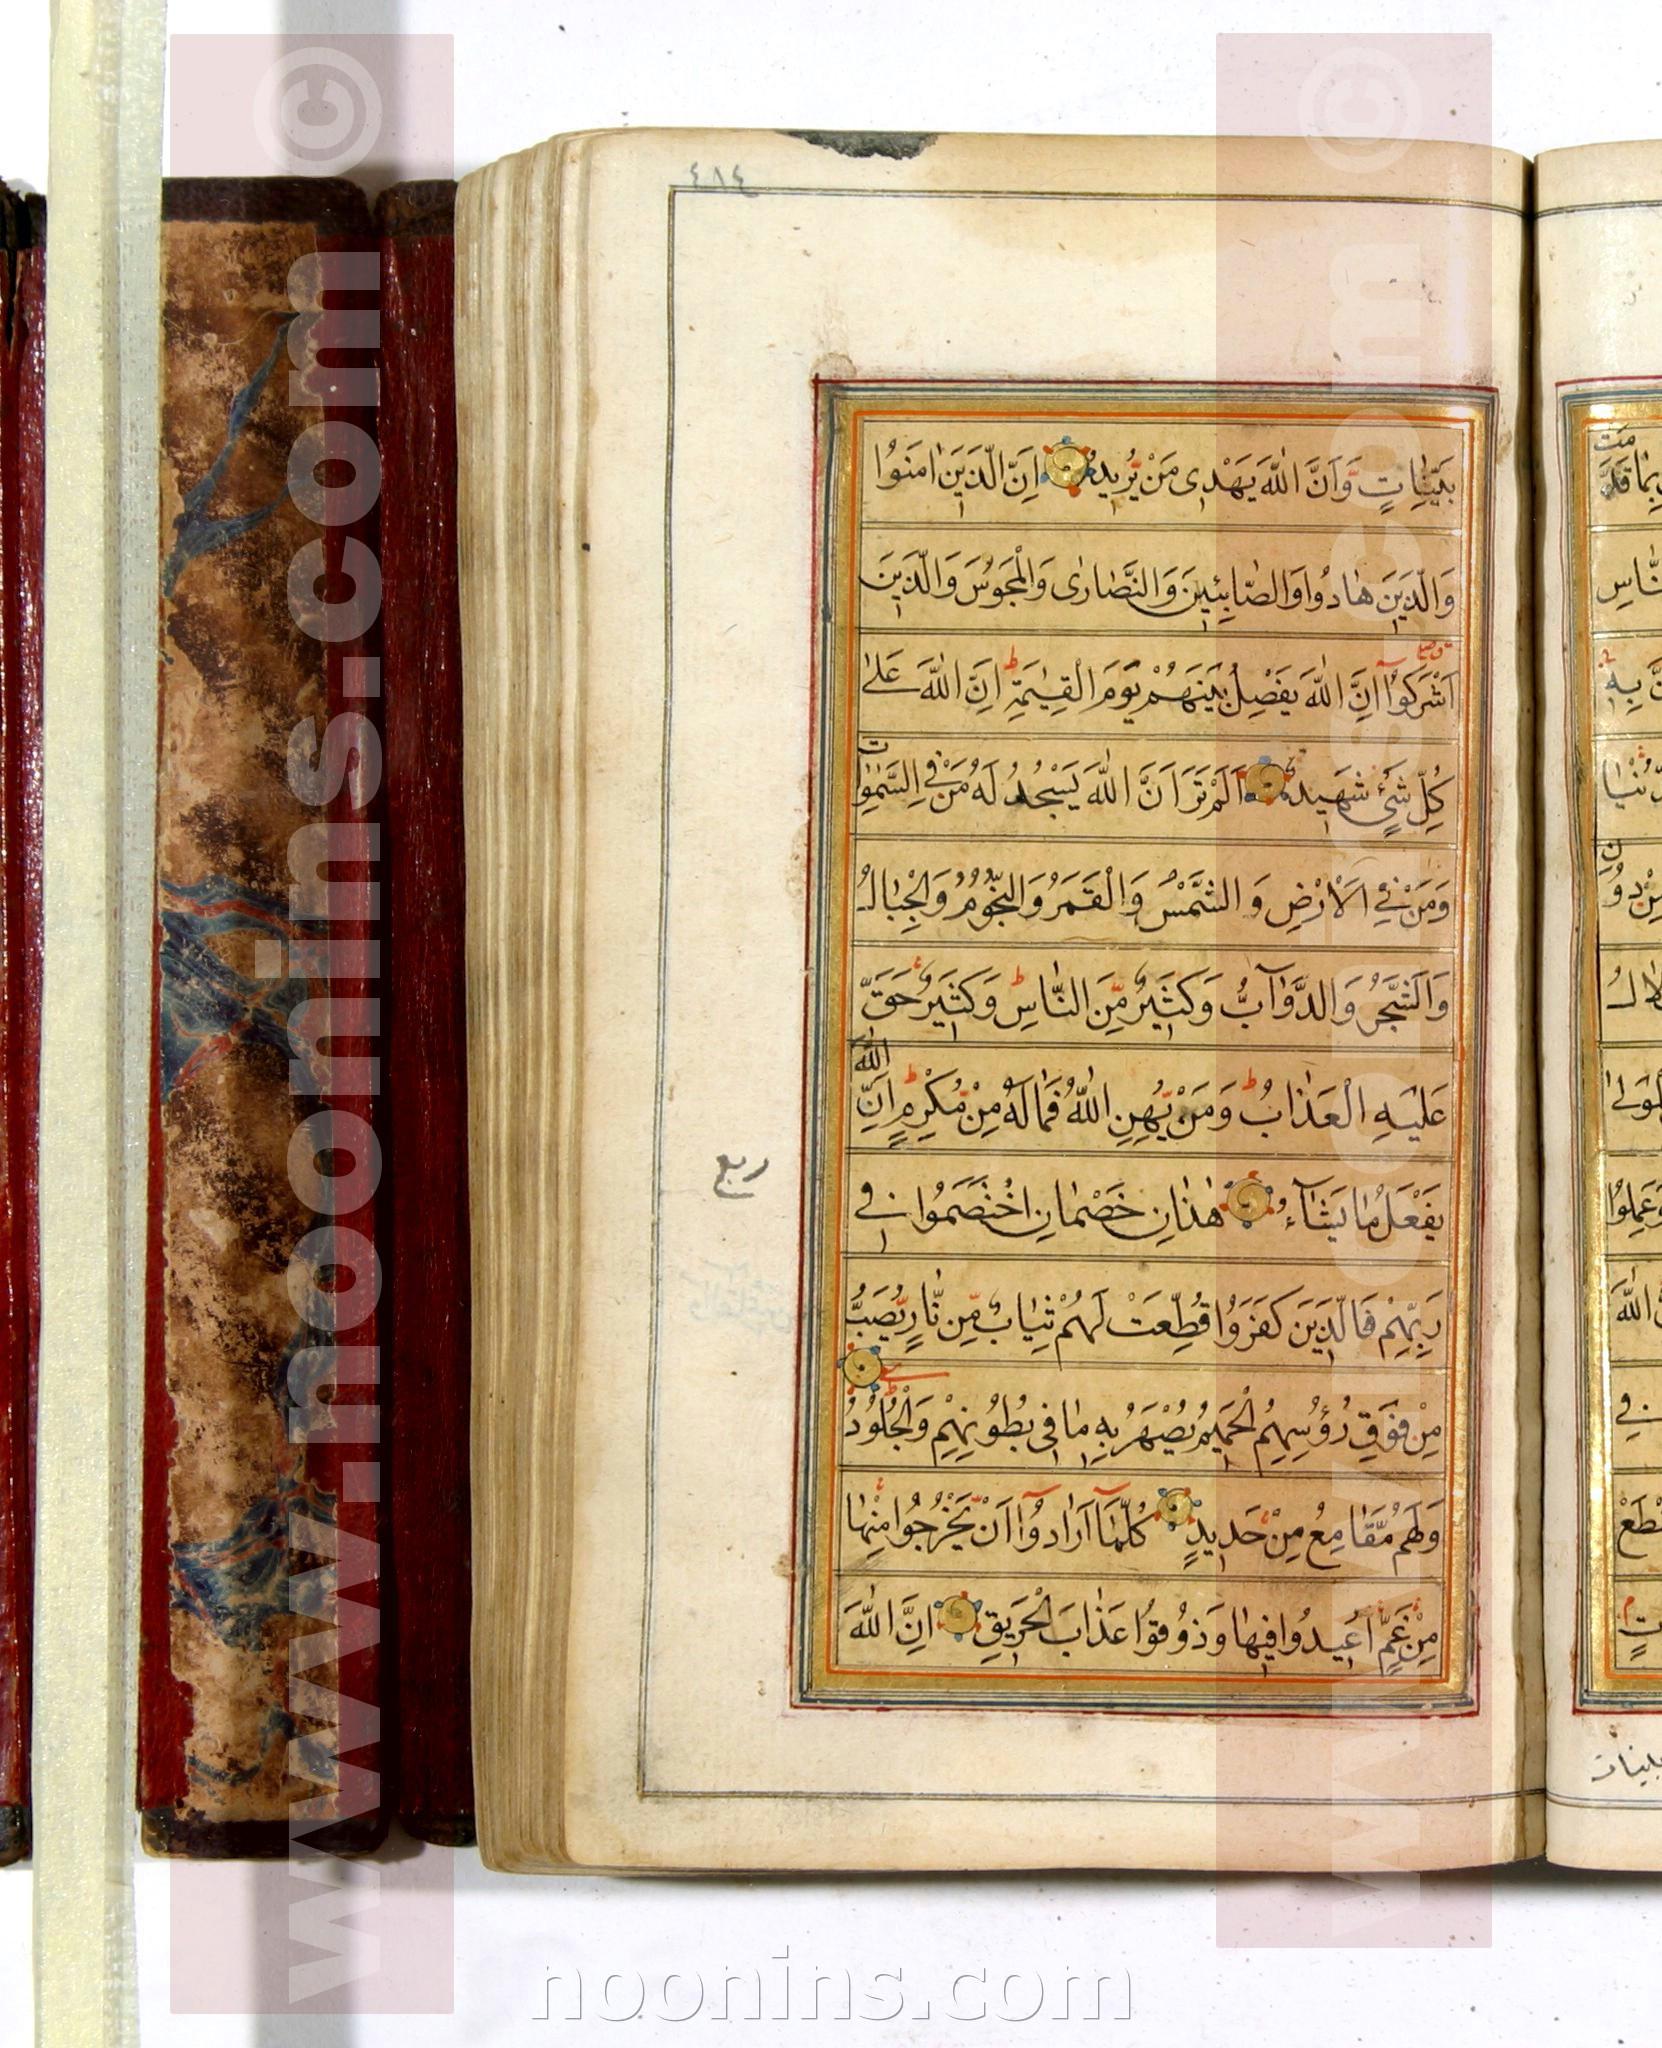 ٤١٤
بَيِّنٰاتٍ وَاَنَّ اللّٰهَ يَهْدِى مَنْ يُرِيدُ اِنَّ الَّذِيَن اٰمَنُوا
وَالَّذِيَن هٰادُوا وَالصّٰابِئِيَن وَالنَّصٰارٰى وَالْمَجُوسَ وَالَّذِيَن
اَشْرَكُوٓا اِنَّ اللّٰهَ يَفْصِلُ بَيْنَهُمْ يَوْمَ الْقِيٰمَةِ اِنَّ اللّٰهَ عَلٰى
كُلِّ شَىْءٍ شَهِيدٌ اَلَمْ تَرَ اَنَّ اللّٰهَ يَسْجُدُ لَهُ مَنْ فِى السَّمٰوٰات
وَمَنْ فِى الْاَرْضِ وَالشَّمْسُ وَالْقَمَرُ وَالنُّجُومُ وَالْجِبٰالُ
وَالشَّجَرُ وَالدَّوَآبُّ وَكَثِيرٌ مِنَ النّٰاسِ وَكَثِيرٌ حَقَّ
عَلَيْهِ الْعَذٰابُ وَمَنْ يُهِنِ اللّٰهُ فَمٰا لَهُ مِنْ مُكْرِمٍ اِنَّ اللّٰهَ
يَفْعَلُ مٰا يَشٰآءُ هٰذٰانِ خَصْمٰانِ اخْتَصَمُوا فِى
ربع
رَبِّهِمْ فَالَّذِيَن كَفَرُوا قُطِّعَتْ لَهُمْ ثِيٰابٌ مِنْ نٰارٍ يُصَبُّ
مِنْ فَوْقِ رُؤُسِهِمُ الْحَمِيمُ يُصْهَرُ بِهِ مٰا فِى بُطُونِهِمْ وَالْجُلُودُ
وَلَهُمْ مَقٰامِعُ مِنْ حَدِيدٍ كُلَّمٰآ اَرٰادُوٓا اَنْ يَخْرُجُوا مِنْهٰا
مِنْ غَمٍّ اُعِيدُوا فِيهٰا وَذُوقُوا عَذٰابَ الْحَرِيقِ اِنَّ اللّٰهَ
بينات
www.noonins.com ©
www.noonins.com ©
noonins.com